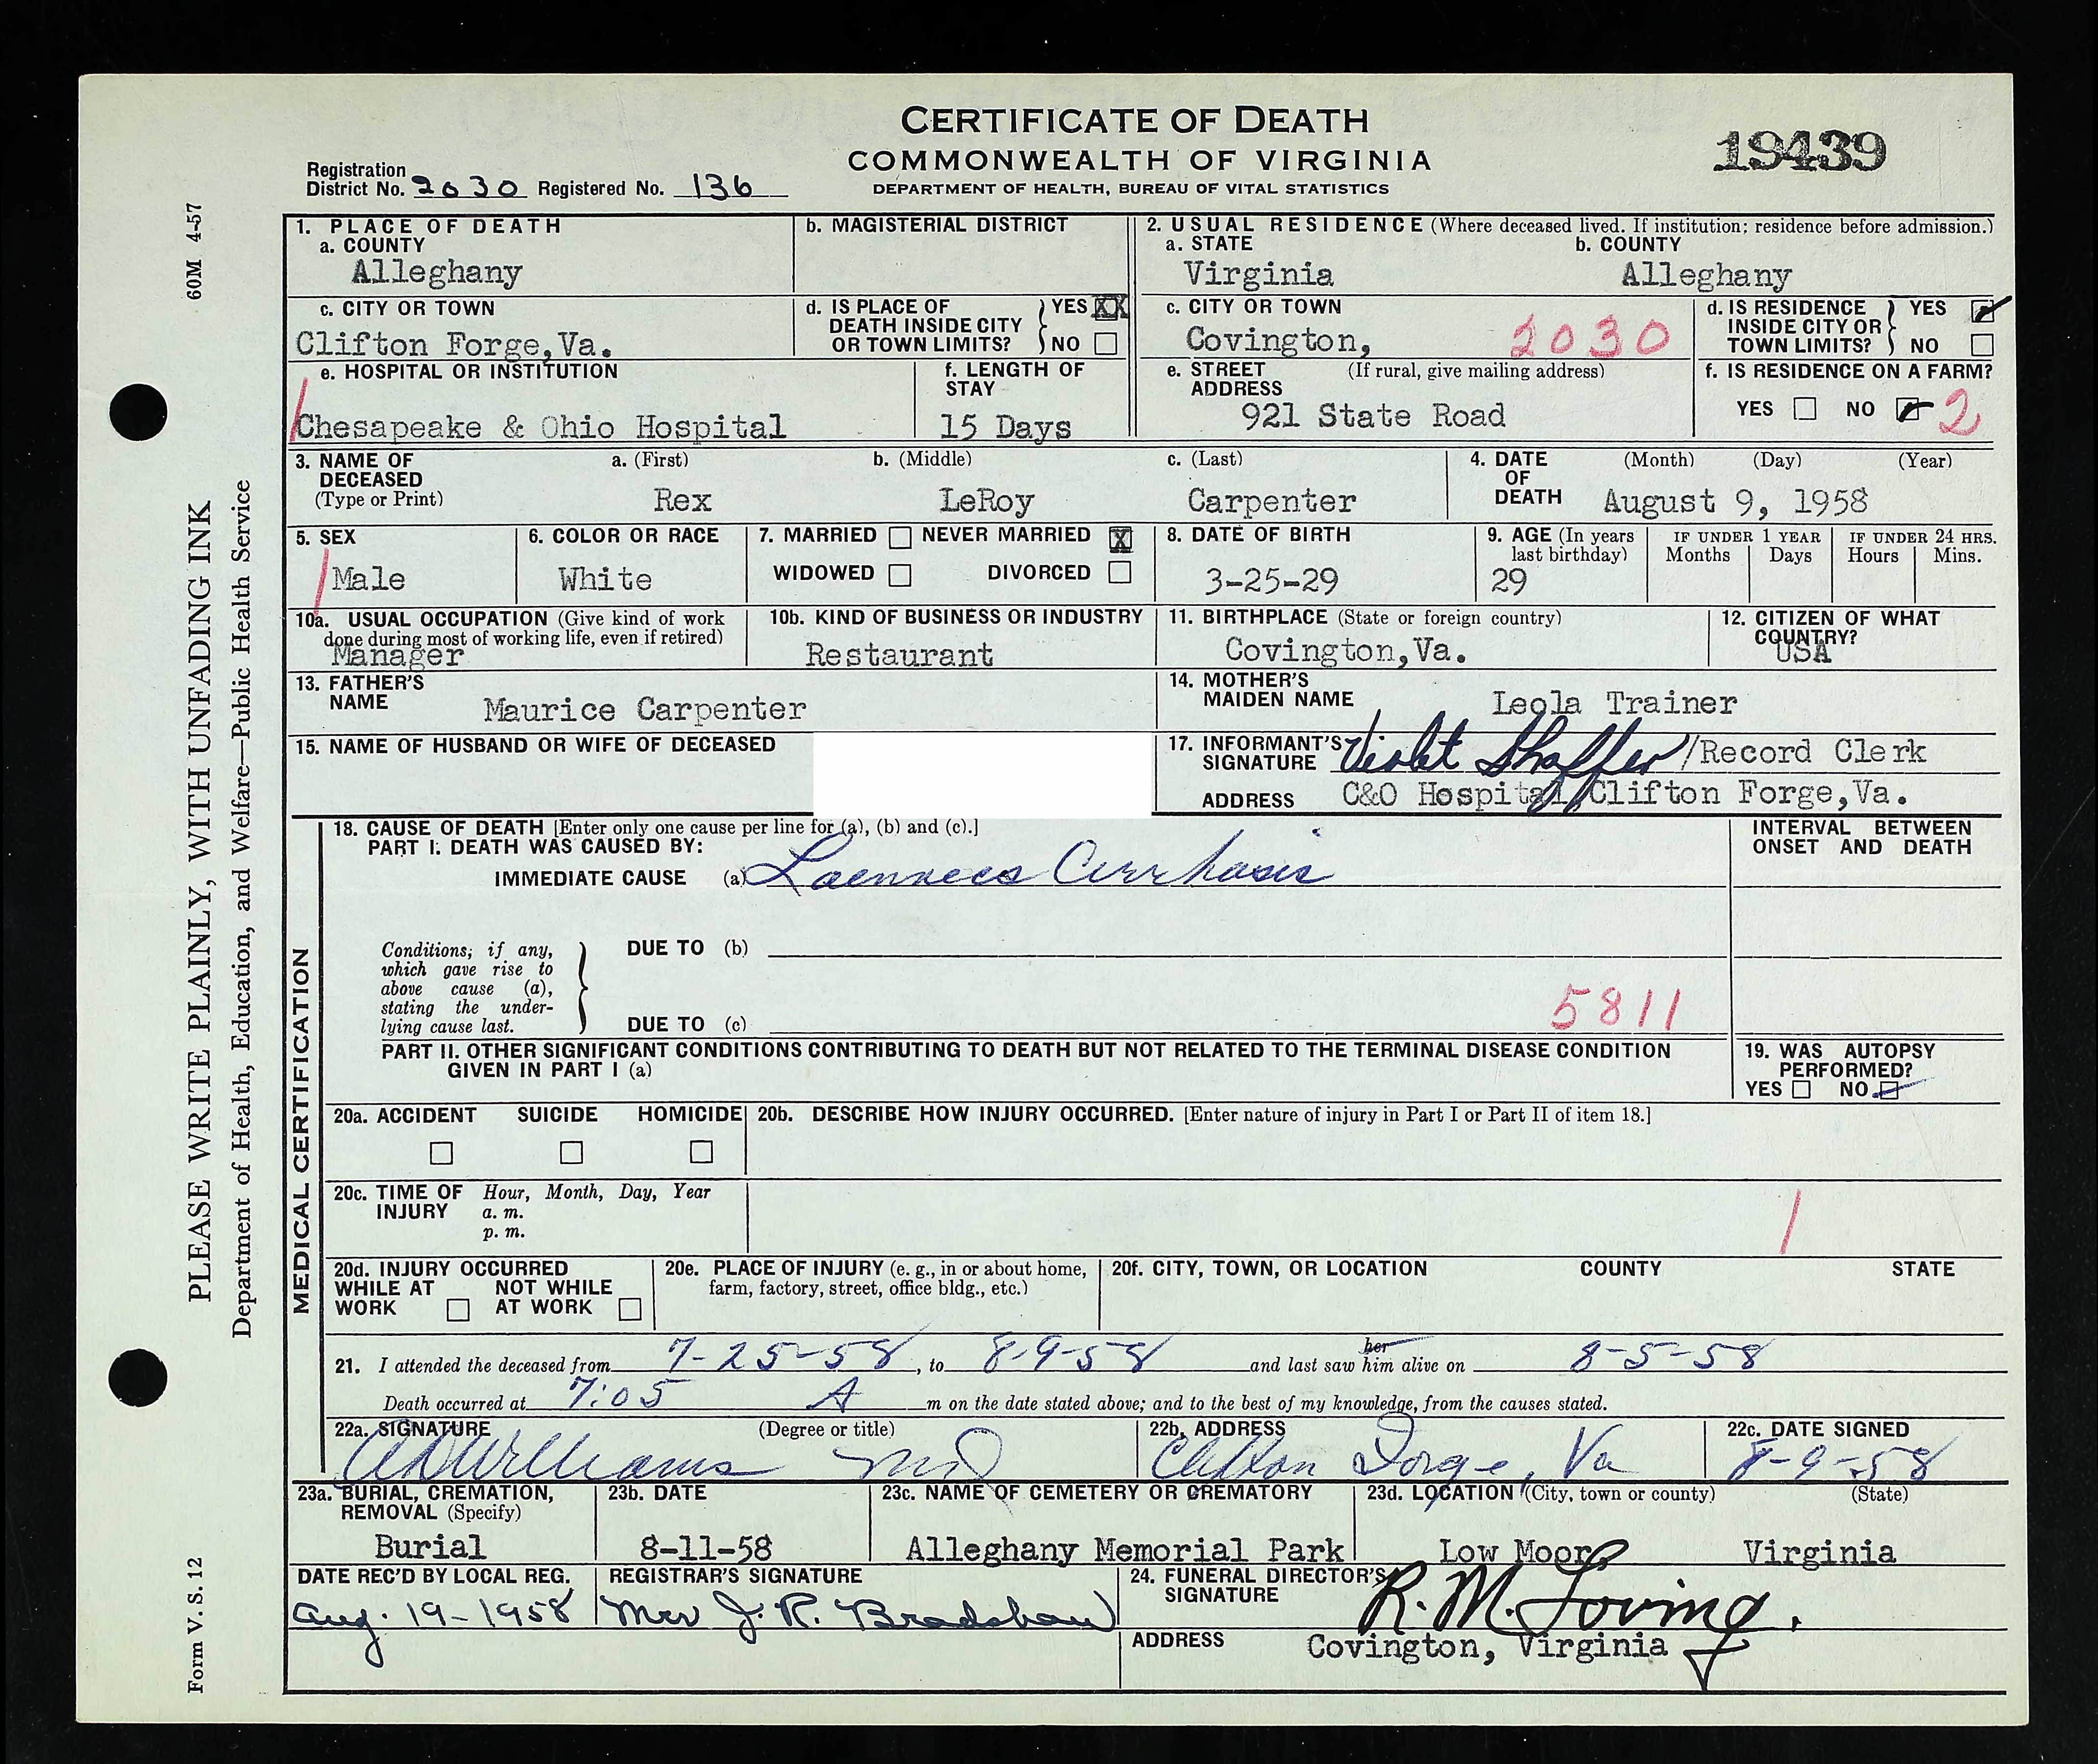 CERTIFICATE OF DEATH
COMMONWEALTH OF VIRGINIA
DEPARTMENT OF HEALTH, BUREAU OF VITAL STATISTICS
19439
Registration
District No. 2030 Registered No. 136
60M 4-57
PLEASE WRITE PLAINLY, WITH UNFADING INK
Department of Health, Education, and Welfare—Public Health Service
Form V. S. 12
1. PLACE OF DEATH
a. COUNTY
Alleghany
b. MAGISTERIAL DISTRICT
2. USUAL RESIDENCE (Where deceased lived. If institution; residence before admission.)
a. STATE
Virginia
b. COUNTY
Alleghany
c. CITY OR TOWN
Clifton Forge,Va.
d. IS PLACE OF DEATH INSIDE CITY OR TOWN LIMITS? YES XX NO
c. CITY OR TOWN
Covington, 2030
d. IS RESIDENCE INSIDE CITY OR TOWN LIMITS? YES NO
e. HOSPITAL OR INSTITUTION
Chesapeake & Ohio Hospital
f. LENGTH OF STAY
15 Days
e. STREET ADDRESS (If rural, give mailing address)
921 State Road
f. IS RESIDENCE ON A FARM?
YES NO 2
3. NAME OF DECEASED (Type or Print)
a. (First) b. (Middle) c. (Last)
Rex LeRoy Carpenter
4. DATE OF DEATH (Month) (Day) (Year)
August 9, 1958
5. SEX
Male
6. COLOR OR RACE
White
7. MARRIED NEVER MARRIED X
WIDOWED DIVORCED
8. DATE OF BIRTH
3-25-29
9. AGE (In years last birthday)
29
IF UNDER 1 YEAR
Months Days
IF UNDER 24 HRS.
Hours Mins.
10a. USUAL OCCUPATION (Give kind of work done during most of working life, even if retired)
Manager
10b. KIND OF BUSINESS OR INDUSTRY
Restaurant
11. BIRTHPLACE (State or foreign country)
Covington,Va.
12. CITIZEN OF WHAT COUNTRY?
USA
13. FATHER'S NAME
Maurice Carpenter
14. MOTHER'S MAIDEN NAME
Leola Trainer
15. NAME OF HUSBAND OR WIFE OF DECEASED
17. INFORMANT'S SIGNATURE Violet Shaffer/Record Clerk
ADDRESS C&O Hospital,Clifton Forge,Va.
MEDICAL CERTIFICATION
18. CAUSE OF DEATH [Enter only one cause per line for (a), (b) and (c).]
PART I. DEATH WAS CAUSED BY:
IMMEDIATE CAUSE (a) Laennecs Cirrhosis
INTERVAL BETWEEN ONSET AND DEATH
Conditions, if any, which gave rise to above cause (a), stating the underlying cause last.
DUE TO (b)
DUE TO (c)
5811
PART II. OTHER SIGNIFICANT CONDITIONS CONTRIBUTING TO DEATH BUT NOT RELATED TO THE TERMINAL DISEASE CONDITION
GIVEN IN PART I (a)
19. WAS AUTOPSY PERFORMED?
YES NO
20a. ACCIDENT SUICIDE HOMICIDE
20b. DESCRIBE HOW INJURY OCCURRED. [Enter nature of injury in Part I or Part II of item 18.]
20c. TIME OF INJURY Hour, Month, Day, Year
a. m.
p. m.
20d. INJURY OCCURRED
WHILE AT WORK NOT WHILE AT WORK
20e. PLACE OF INJURY (e. g., in or about home, farm, factory, street, office bldg., etc.)
20f. CITY, TOWN, OR LOCATION COUNTY STATE
21. I attended the deceased from 7-25-58, to 8-9-58 and last saw her him alive on 8-5-58
Death occurred at 7:05 A m on the date stated above; and to the best of my knowledge, from the causes stated.
22a. SIGNATURE (Degree or title)
Williams MD
22b. ADDRESS
Clifton Forge, Va
22c. DATE SIGNED
8-9-58
23a. BURIAL, CREMATION, REMOVAL (Specify)
Burial
23b. DATE
8-11-58
23c. NAME OF CEMETERY OR CREMATORY
Alleghany Memorial Park
23d. LOCATION (City, town or county) (State)
Low Moor Virginia
DATE REC'D BY LOCAL REG.
Aug. 19-1958
REGISTRAR'S SIGNATURE
Mrs J. R. Bradshaw
24. FUNERAL DIRECTOR'S SIGNATURE
R. M. Loving.
ADDRESS Covington, Virginia